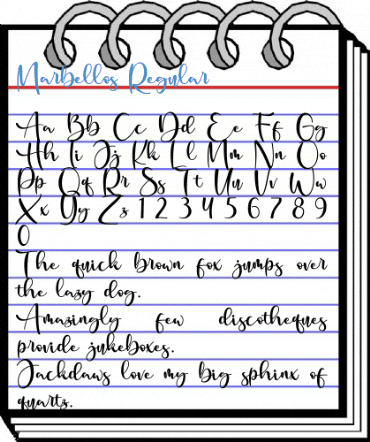 Marbellos Regular
Aa Bb Cc Dd Ee Ff Gg
Hh Ii Jj Kk Ll Mm Nn Oo
Pp Qq Rr Ss Tt Uu Vv Ww
Xx Yy Zz 1 2 3 4 5 6 7 8 9
0
The quick brown fox jumps over
the lazy dog.
Amazingly few discotheques
provide jukeboxes.
Jackdaws love my big sphinx of
quartz.